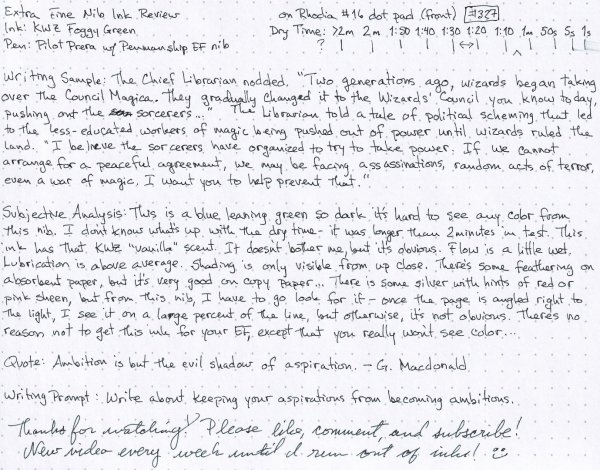 Extra Fine Nib Ink Review on Rhodia #16 dot pad (front) #1327
Ink: KWZ Foggy Green Dry Time: >2m 2m 1:50 1:40 1:30 1:20 1:10 1m 50s 5s 1s
Pen: Pilot Prera w/ Penmanship EF nib ?
Writing Sample: The Chief Librarian nodded. "Two generations ago, wizards began taking
over the Council Magica. They gradually changed it to the Wizards' Council you know today,
pushing out the sorcerers..." The Librarian told a tale of political scheming that led
to the less-educated workers of magic being pushed out of power until wizards ruled the
land. "I believe the sorcerers have organized to try to take power. If we cannot
arrange for a peaceful agreement, we may be facing assassinations, random acts of terror,
even a war of magic, I want you to help prevent that."
Subjective Analysis: This is a blue leaning green so dark it's hard to see any color from
this nib. I don't know what's up with the dry time - it was longer than 2 minutes in test. This
ink has that KWZ "vanilla" scent. It doesn't bother me, but it's obvious. Flow is a little wet.
Lubrication is above average. Shading is only visible from up close. There's some feathering on
absorbent paper, but it's very good on copy paper... There is some silver with hints of red or
pink sheen, but from this nib, I have to go look for it - once the page is angled right to
the light, I see it on a large percent of the line, but otherwise, it's not obvious. There's no
reason not to get this ink for your EF, except that you really won't see color...
Quote: Ambition is but the evil shadow of aspiration. - G. Macdonald
Writing Prompt: Write about keeping your aspirations from becoming ambitions.
Thanks for watching! Please like, comment, and subscribe!
New video every week until I run out of inks!